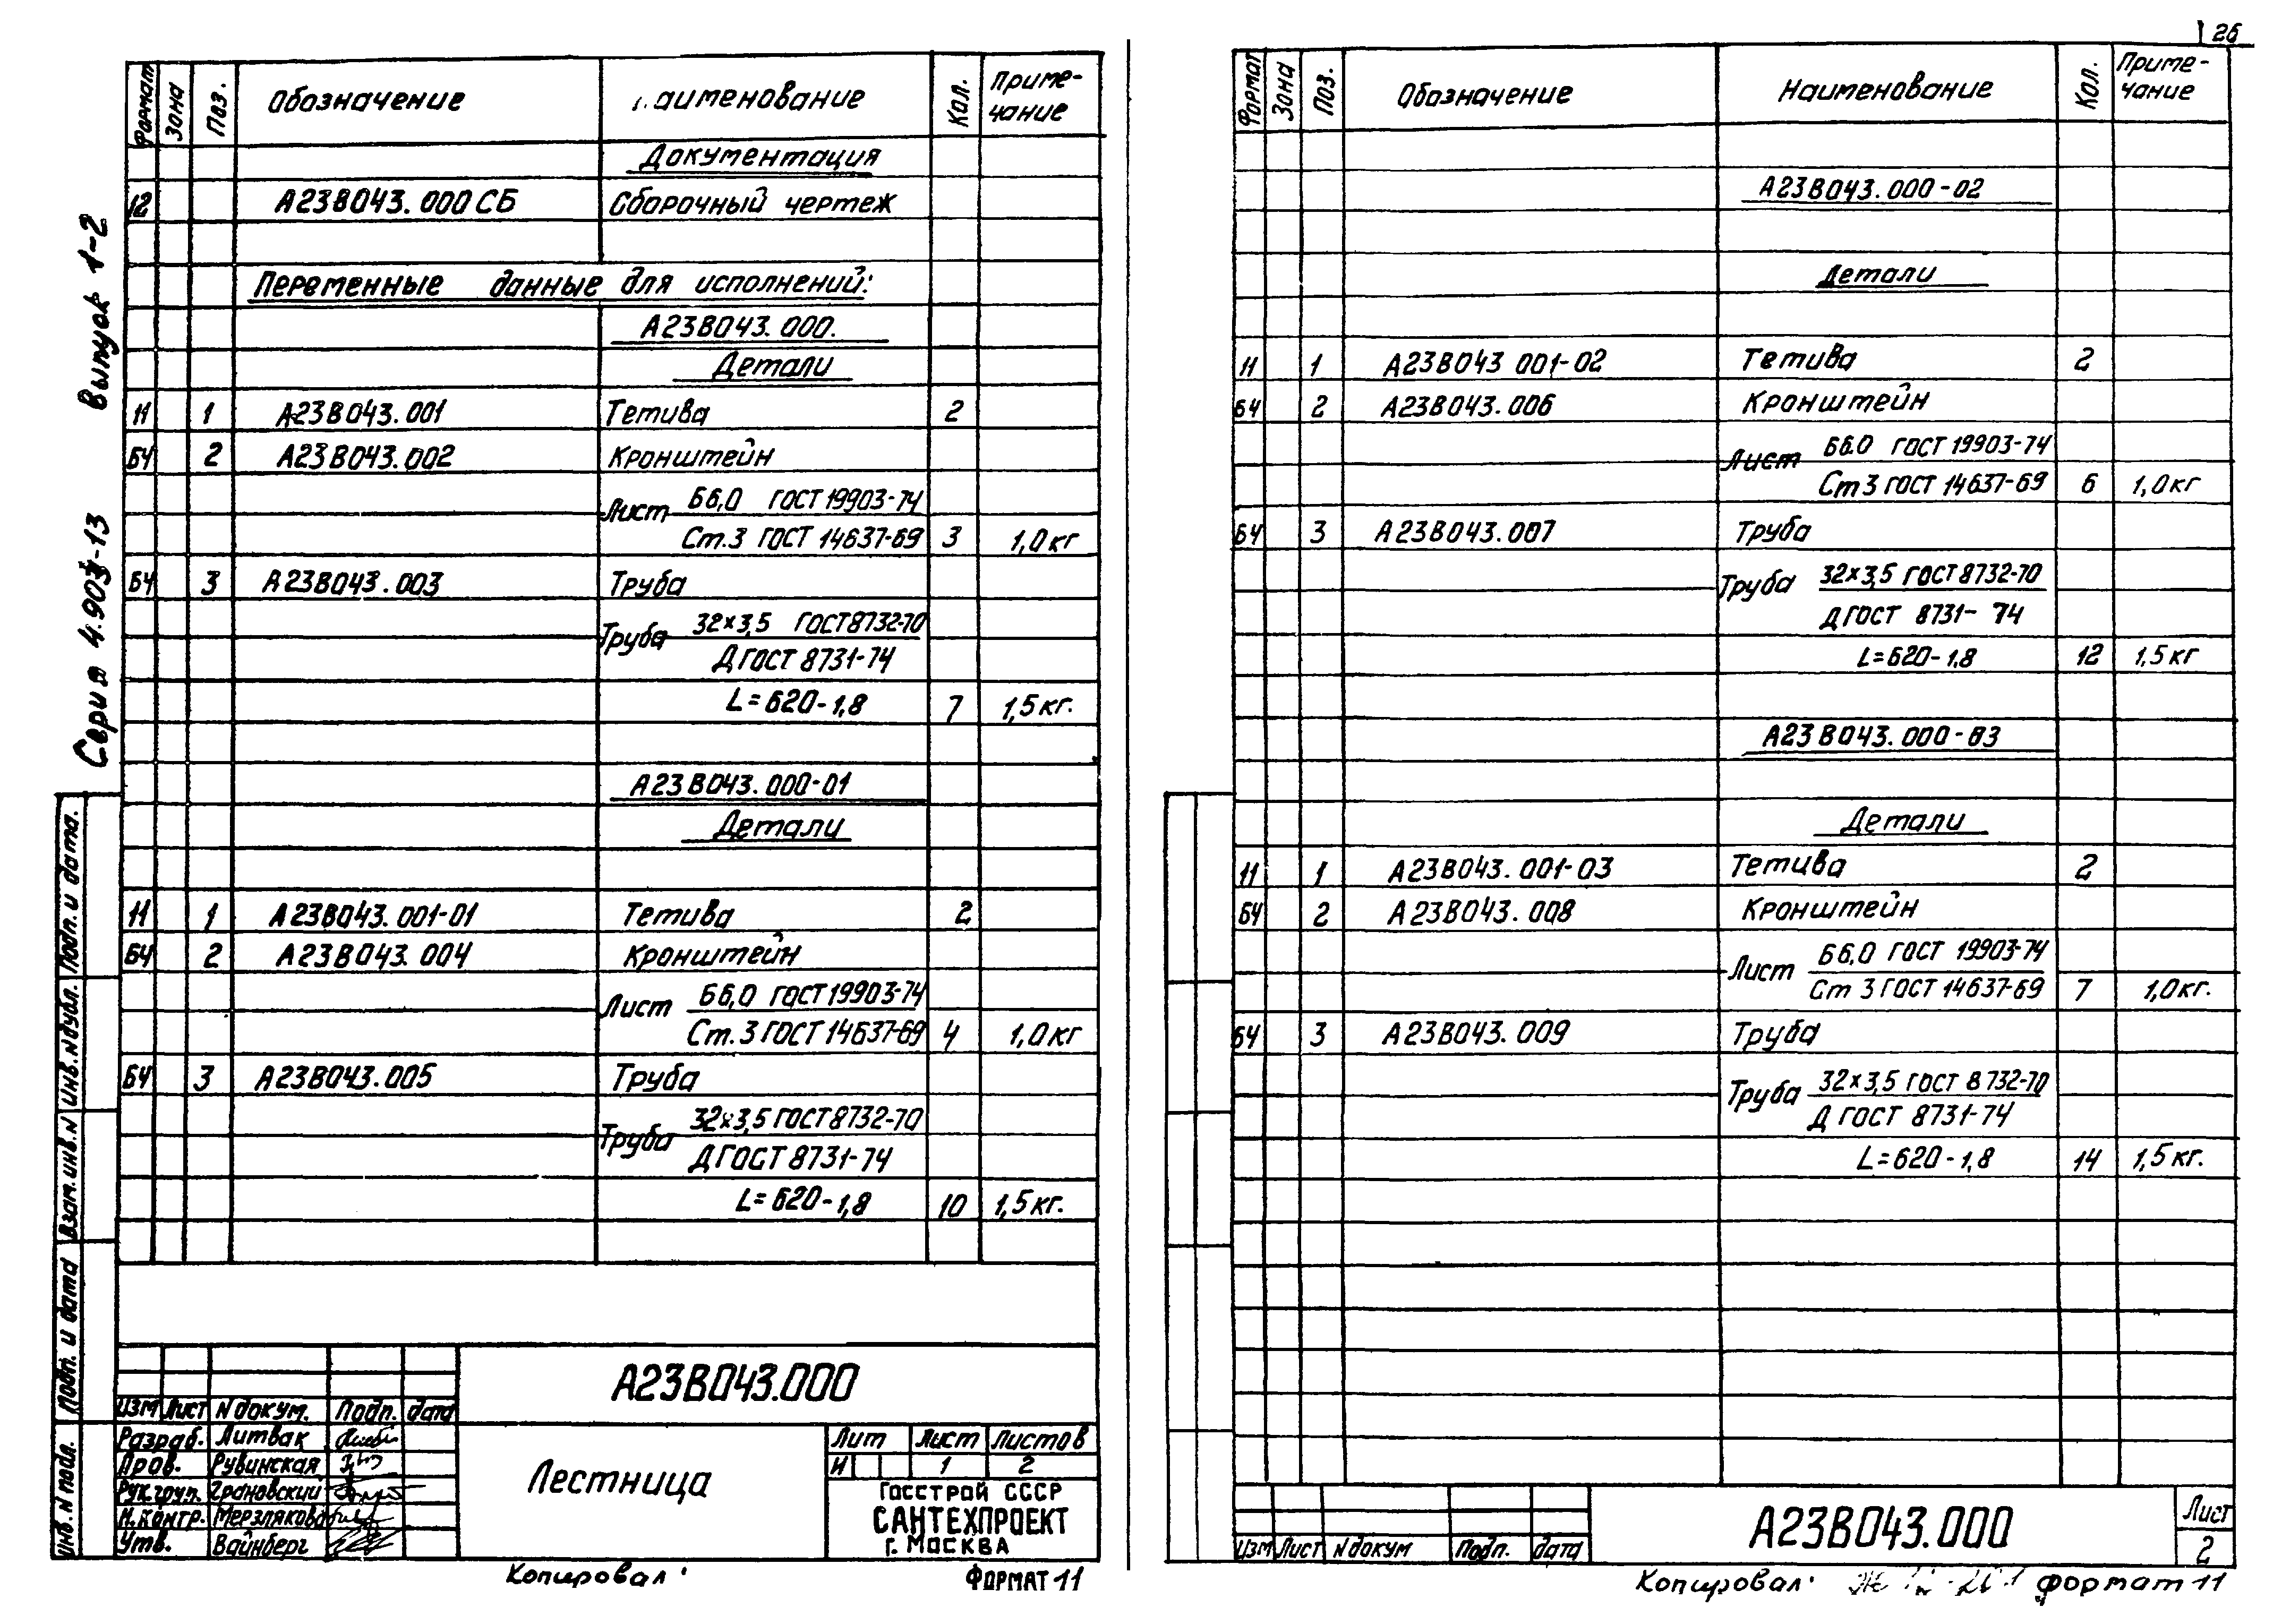 26
Серия 4.903-13 Выпуск 1-2
Формат Зона Поз. Обозначение Наименование Кол. Приме-
чание
Документация
12 А23В043.000 СБ Сборочный чертеж
Переменные данные для исполнений:
А23В043.000.
Детали
11 1 А23В043.001 Тетива 2
БЧ 2 А23В043.002 Кронштейн
Лист Б6,0 ГОСТ 19903-74
Ст.3 ГОСТ 14637-69 3 1,0кг
БЧ 3 А23В043.003 Труба
Труба 32×3,5 ГОСТ 8732-70
Д ГОСТ 8731-74
L=620-1,8 7 1,5кг.
А23В043.000-01
Детали
11 1 А23В043.001-01 Тетива 2
БЧ 2 А23В043.004 Кронштейн
Лист Б6,0 ГОСТ 19903-74
Ст.3 ГОСТ 14637-69 4 1,0кг
БЧ 3 А23В043.005 Труба
Труба 32×3,5 ГОСТ 8732-70
Д ГОСТ 8731-74
L=620-1,8 10 1,5кг.
Подп. и дата.
Инв.N дубл.
Взам.инв.N
Подп. и дата
Инв.N подл.
А23В043.000
Изм Лист N докум. Подп. дата
Разраб. Литвак
Пров. Рувинская
Рук.груп. Грановский
Н.контр. Мерзлякова
Утв. Вайнберг
Лестница
Лит Лист Листов
И 1 2
Госстрой СССР
САНТЕХПРОЕКТ
г. Москва
Копировал: Формат 11
Формат Зона Поз. Обозначение Наименование Кол. Приме-
чание
А23В043.000-02
Детали
11 1 А23В043 001-02 Тетива 2
БЧ 2 А23В043.006 Кронштейн
Лист Б6.0 ГОСТ 19903-74
Ст 3 ГОСТ 14637-69 6 1,0кг
БЧ 3 А23В043.007 Труба
Труба 32×3,5 ГОСТ 8732-70
Д ГОСТ 8731-74
L=620-1,8 12 1,5кг
А23В043.000-03
Детали
11 1 А23В043.001-03 Тетива 2
БЧ 2 А23В043.008 Кронштейн
Лист Б6,0 ГОСТ 19903-74
Ст 3 ГОСТ 14637-69 7 1,0кг.
БЧ 3 А23В043.009 Труба
Труба 32×3,5 ГОСТ 8732-70
Д ГОСТ 8731-74
L=620-1,8 14 1,5кг.
Изм Лист N докум Подп. дата
А23В043.000
Лист
2
Копировал: формат 11